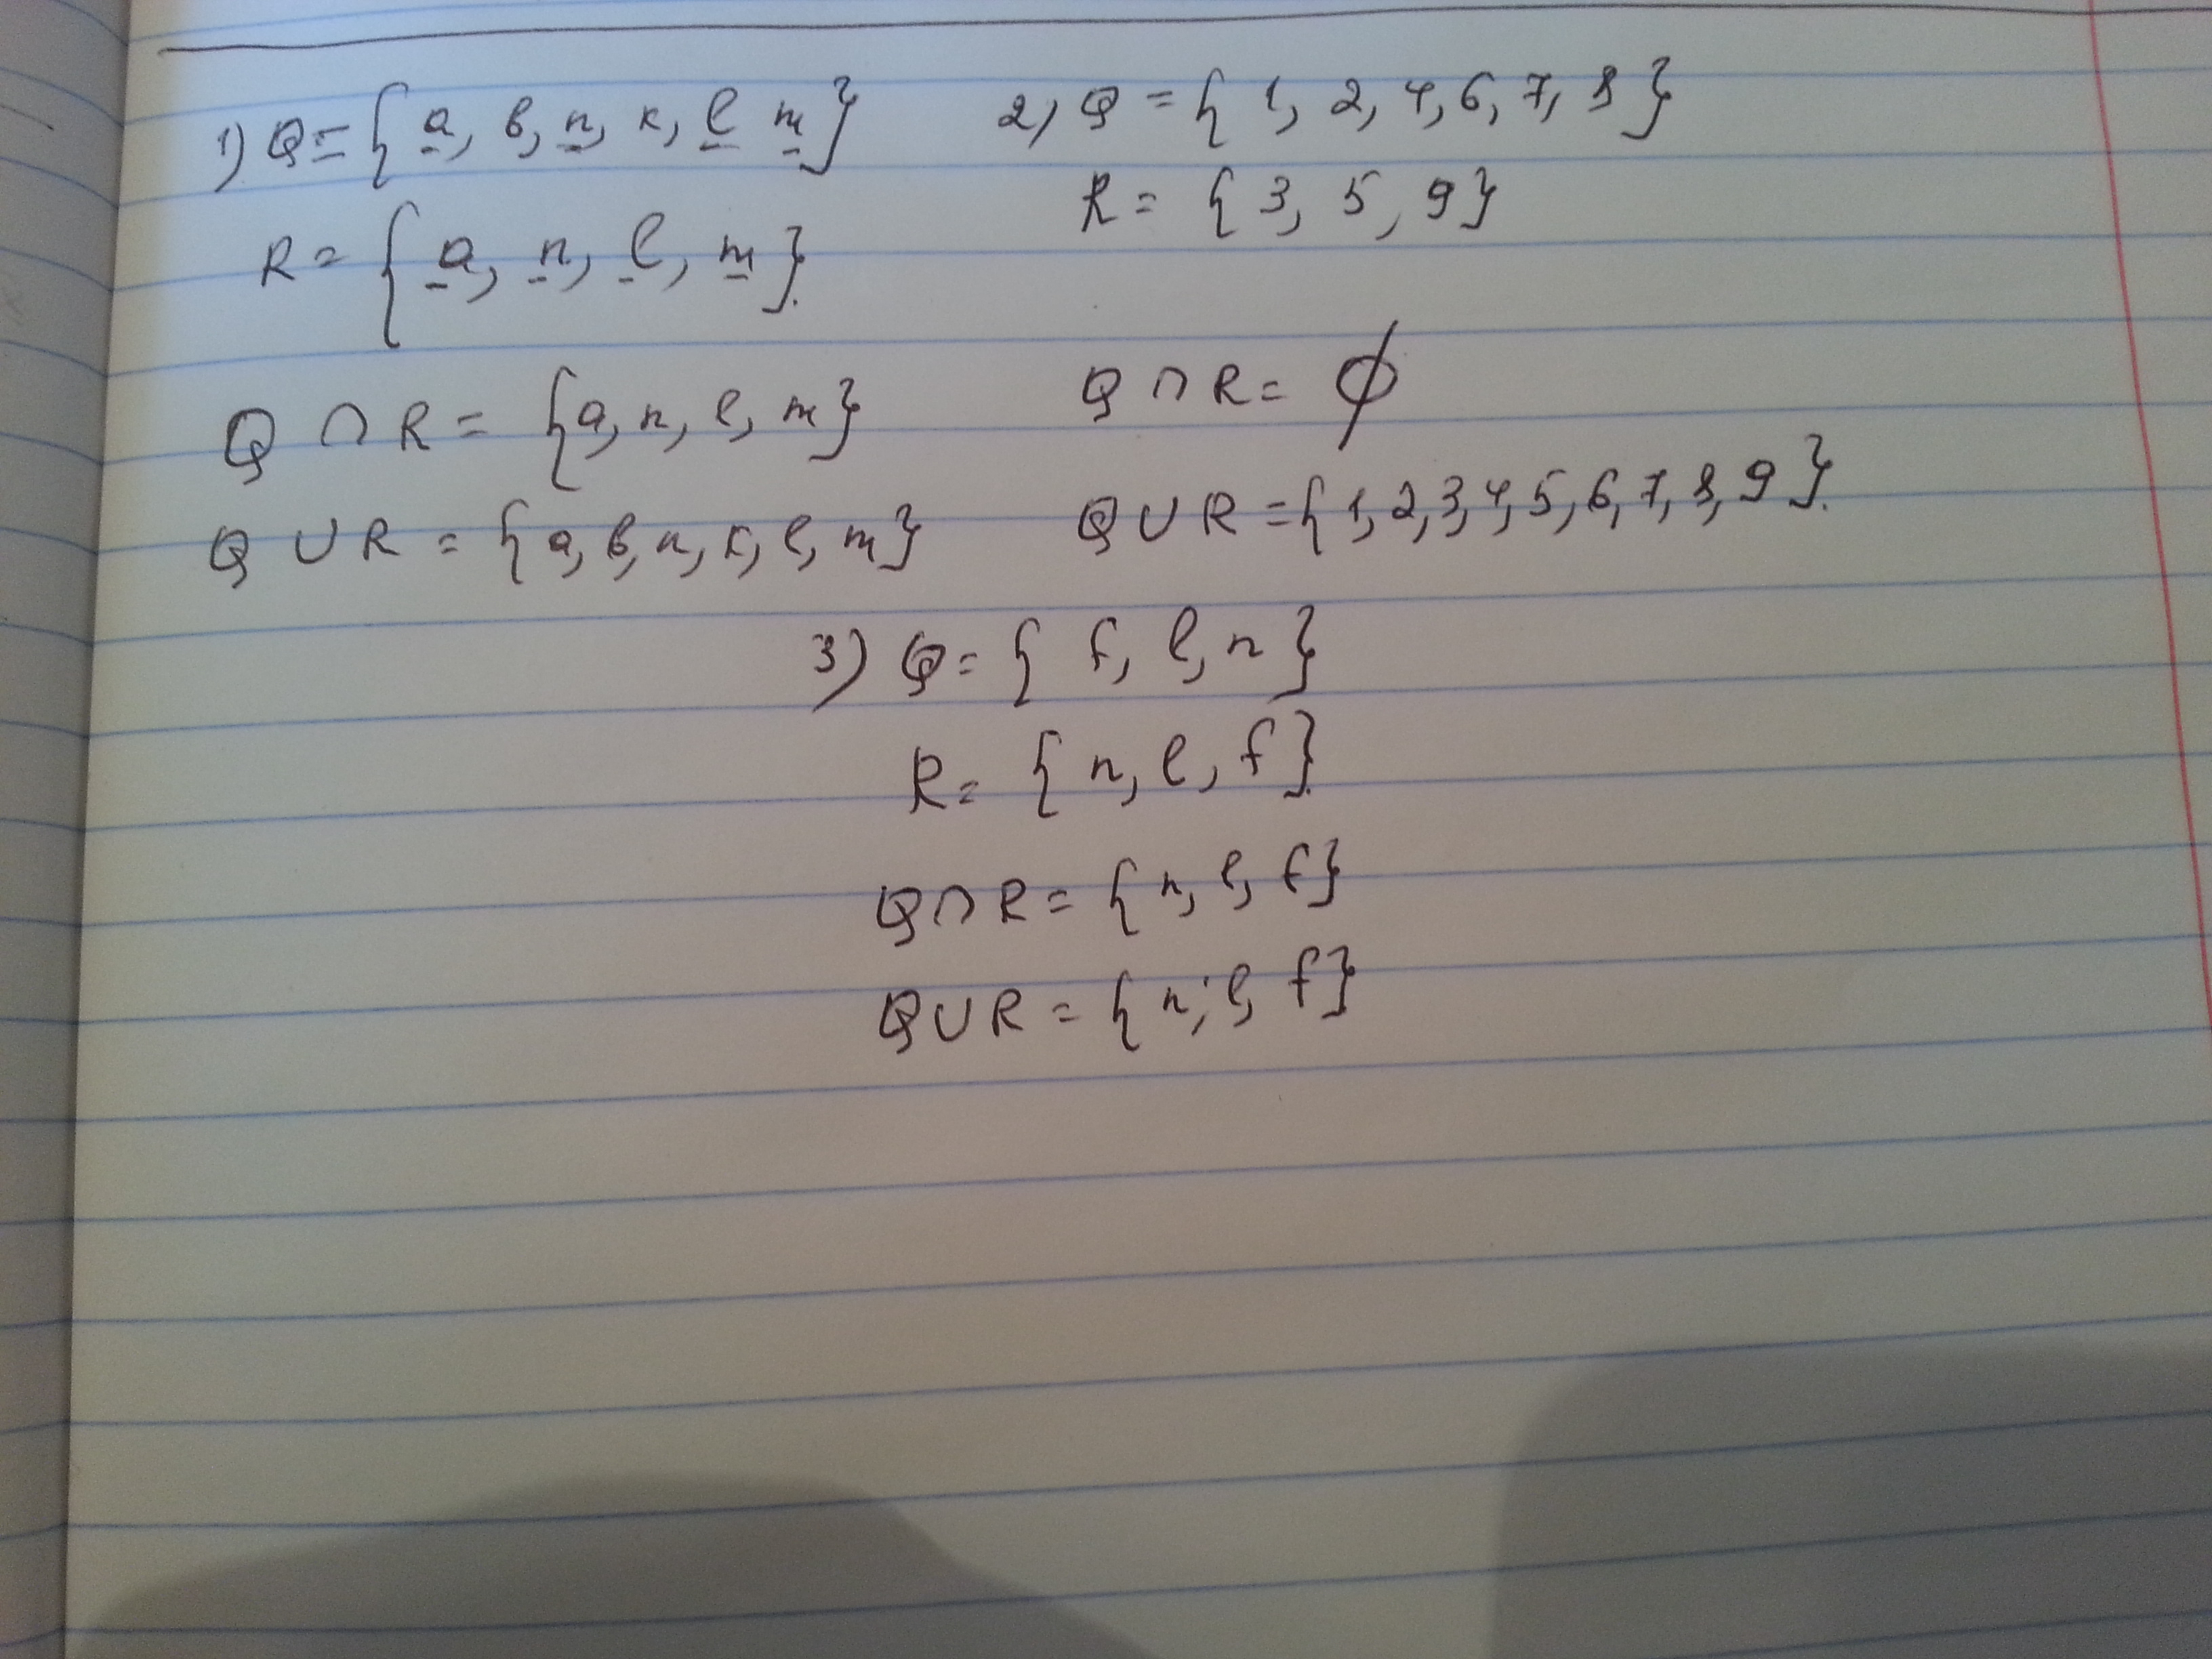 1) Q = { a, b, n, k, l m }
R = { a, n, l, m }.
Q ∩ R = { a, n, l, m }
Q ∪ R = { a, b, n, k, l, m }
2) Q = { 1, 2, 4, 6, 7, 8 }
R = { 3, 5, 9 }
Q ∩ R = ϕ
Q ∪ R = { 1, 2, 3, 4, 5, 6, 7, 8, 9 }.
3) Q = { f, l, n }
R = { n, l, f }.
Q ∩ R = { n, l, f }
Q ∪ R = { n, l, f }